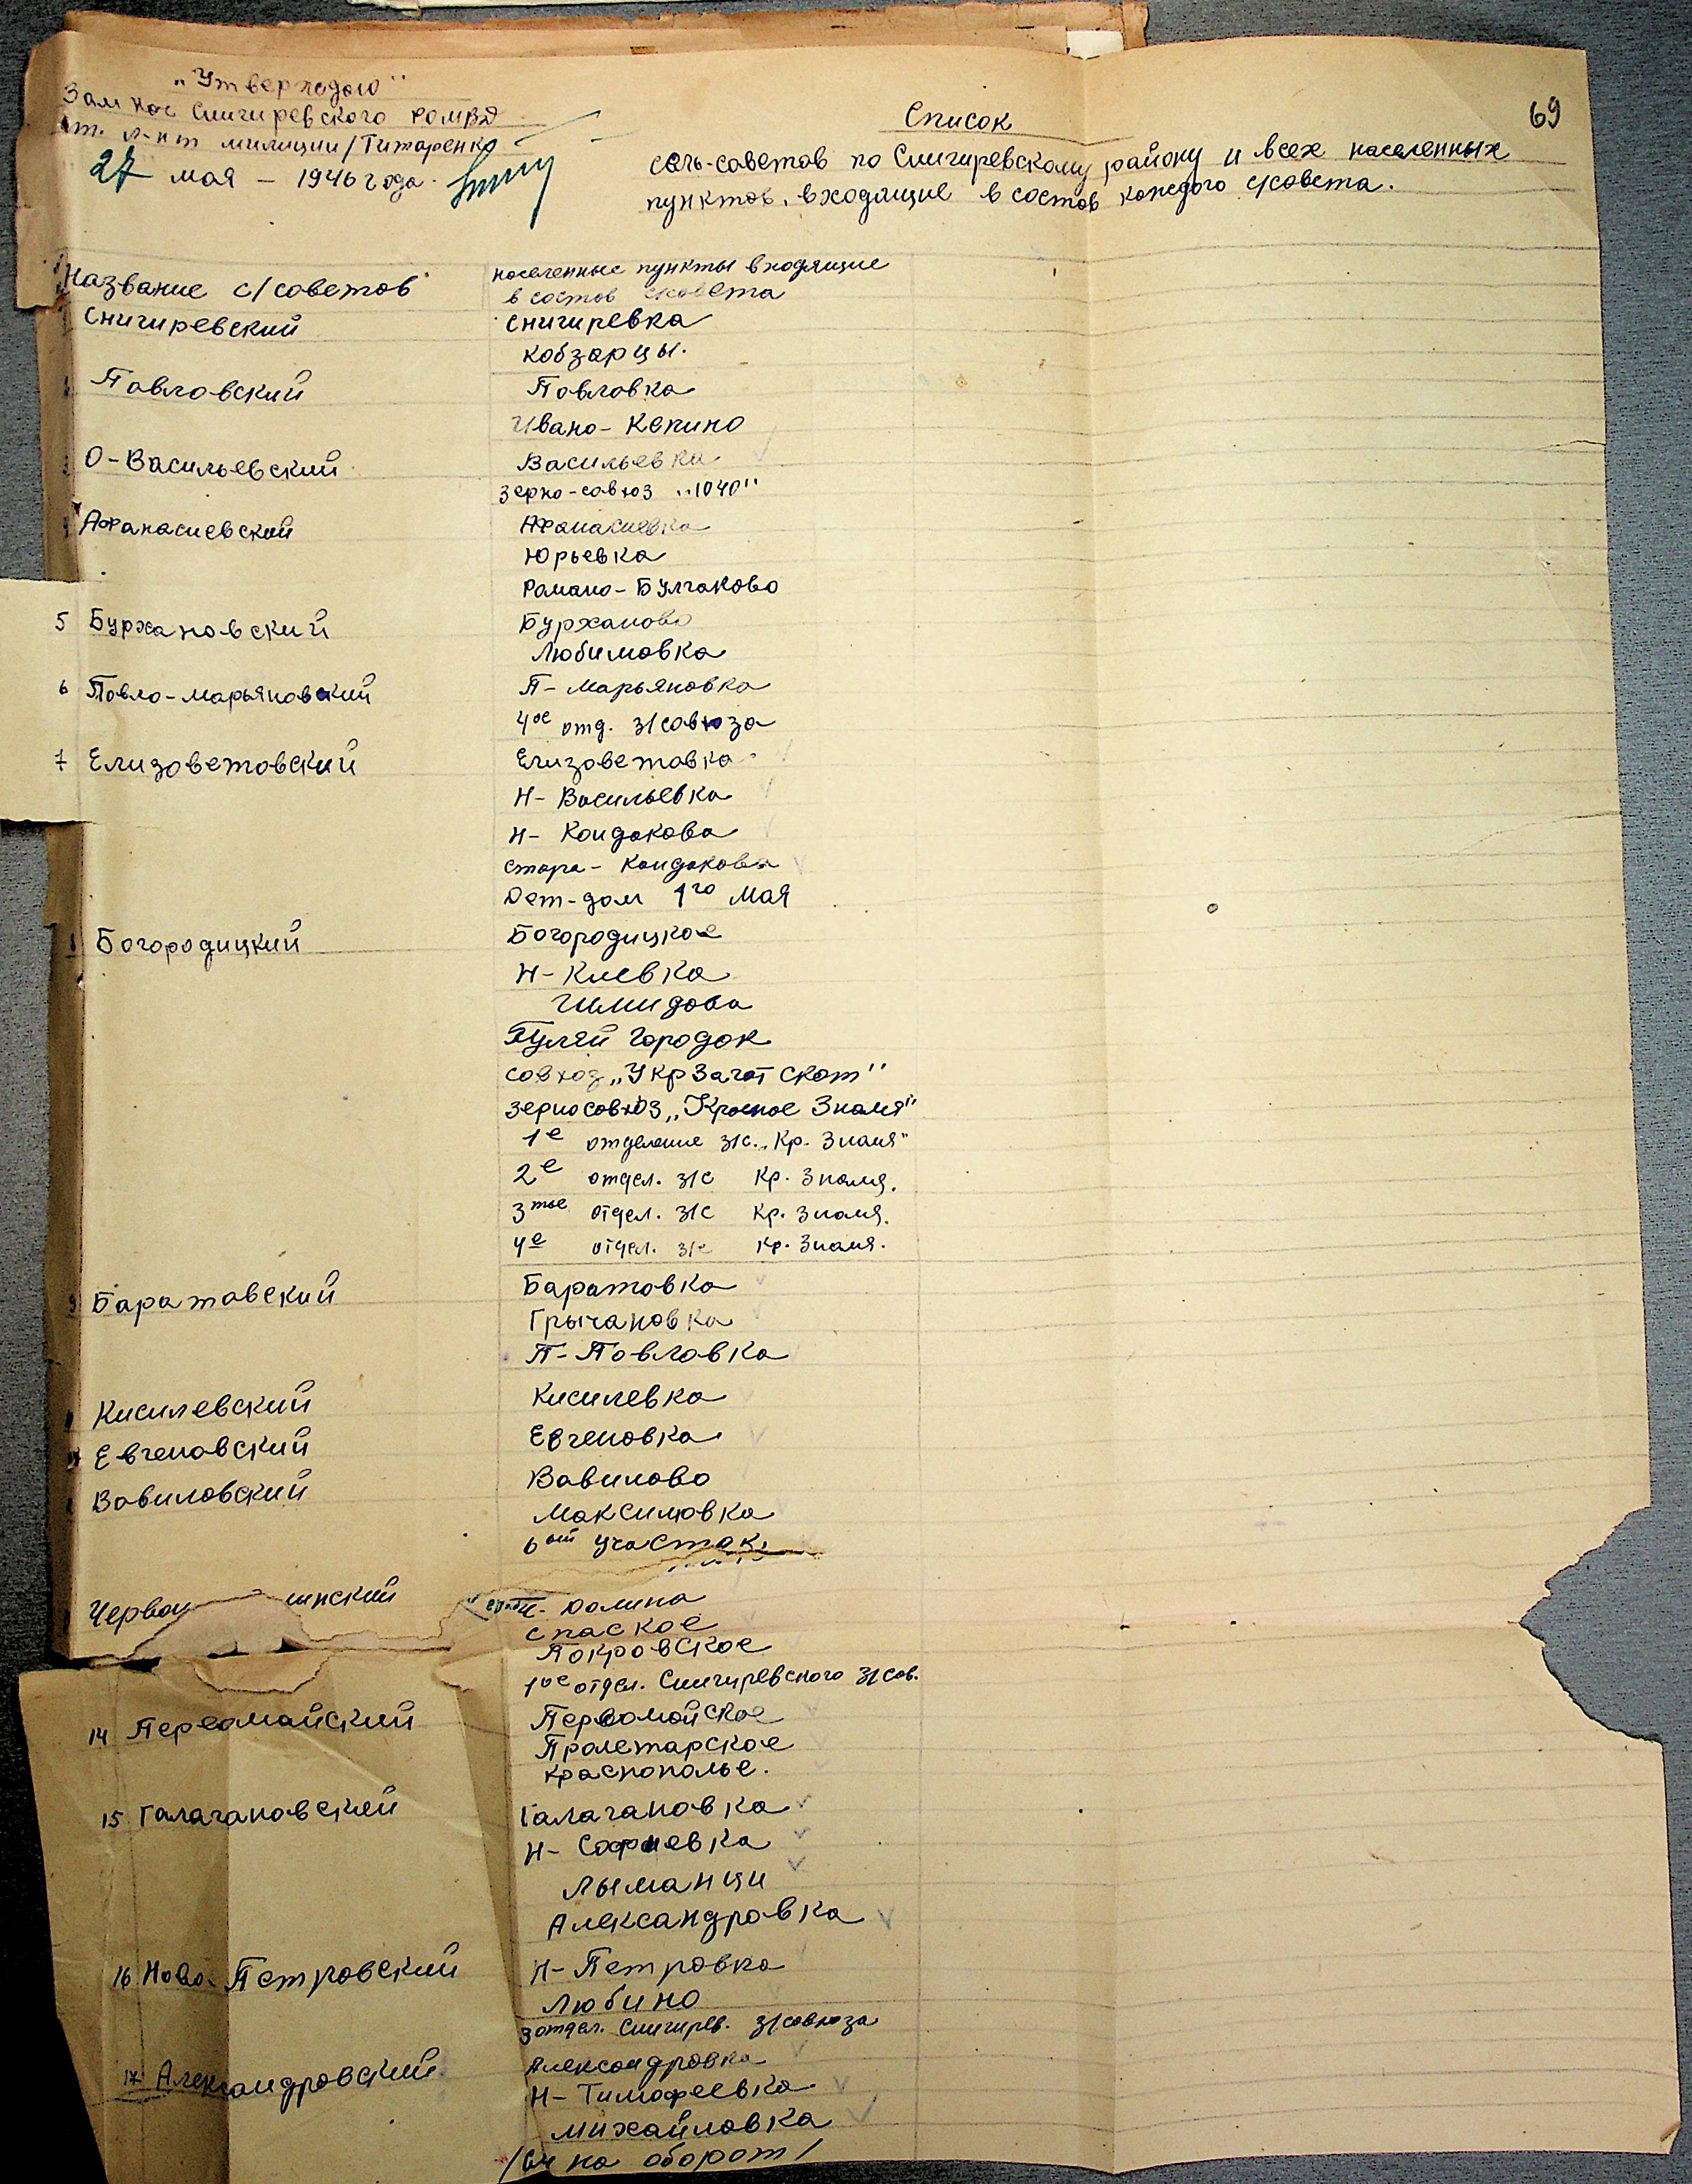 69
„Утверждаю"
Зам нас Снигиревского РОМВД
ст. л-нт милиции /Титаренко
27 мая - 1946 года.
Список
сель-советов по Снигиревскому району и всех населенных
пунктов, входящие в состав каждого с/совета.
Название с/советов
населенные пункты входящие
в состав с/совета
Снигиревский
Снигиревка
Кобзарцы.
Павловский
Павловка
Ивано-Кепино
О-Васильевский
Васильевка
Зерно-совхоз „1040"
Афанасиевский
Афанасиевка
Юрьевка
Романо-Булгаково
5 Бурхановский
Бурханово
Любимовка
6 Павло-Марьяновский
П-Марьяновка
4ое отд. з/совхоза
7 Елизаветовский
Елизаветовка
Н-Васильевка
Н-Кондакова
Старо-Кондакова
Дет-дом 1го Мая
8 Богородицкий
Богородицкое
Н-Киевка
Шмидова
Гуляй Городок
совхоз „УкрЗаготСкот"
зерносовхоз „Красное Знамя"
1е отделение з/с. „Кр. Знамя"
2е отдел. з/с Кр. Знамя.
3тье отдел. з/с Кр. Знамя.
4е отдел. з/с Кр. Знамя.
9 Баратовский
Баратовка
Грычановка
П-Павловка
Кисилевский
Кисилевка
Евгеновский
Евгеновка
Вавиловский
Вавилово
Максимовка
6ой участок.
Червон инский
Долина
Спаское
Покровское
1ое отдел. Снигиревского з/сов.
14 Первомайский
Первомайское
Пролетарское
Краснополье.
15 Галагановский
Галагановка
Н-Софиевка
Лыманци
Александровка
16 Ново-Петровский
Н-Петровка
Любино
3 отдел. Снигирев. з/совхоза
17 Александровский
Александровка
Н-Тимофеевка
Михайловка
/см на оборот/